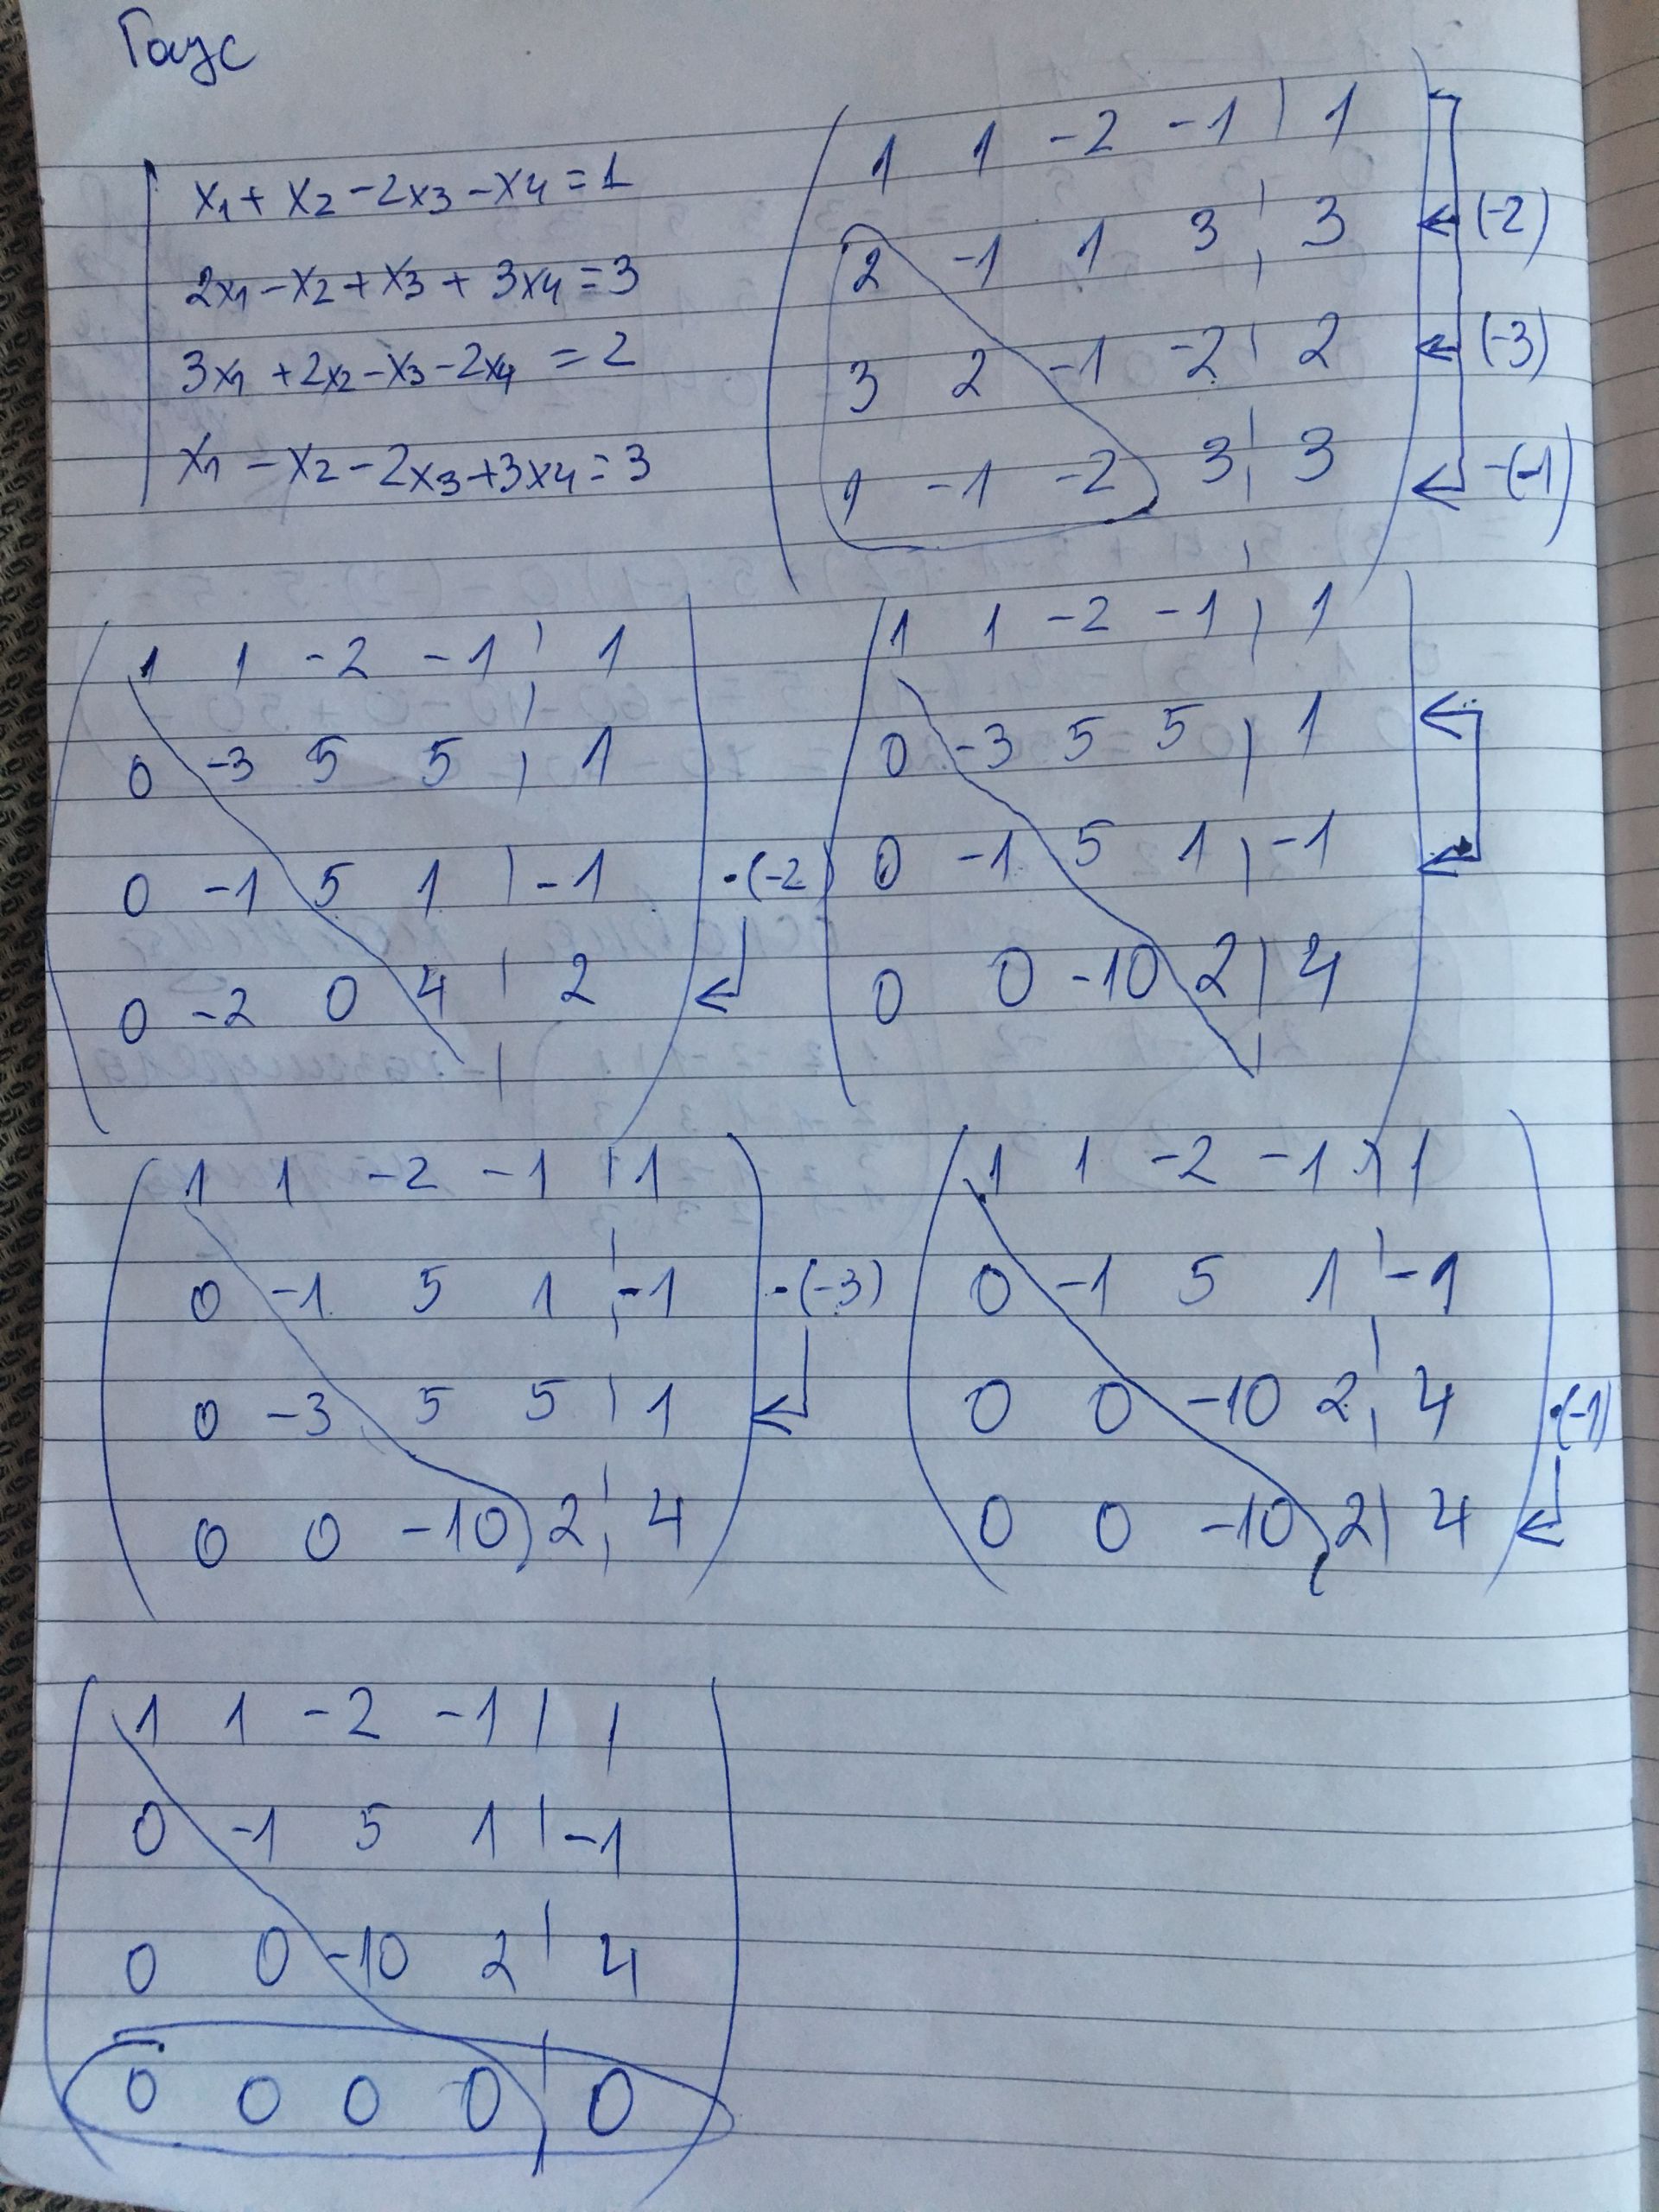 Гаус
x₁ + x₂ - 2x₃ - x₄ = 1
2x₁ - x₂ + x₃ + 3x₄ = 3
3x₁ + 2x₂ - x₃ - 2x₄ = 2
x₁ - x₂ - 2x₃ + 3x₄ = 3
1 1 -2 -1 | 1
2 -1 1 3 | 3 (-2)
3 2 -1 -2 | 2 (-3)
1 -1 -2 3 | 3 -(-1)
1 1 -2 -1 | 1
0 -3 5 5 | 1
0 -1 5 1 | -1 ·(-2)
0 -2 0 4 | 2
1 1 -2 -1 | 1
0 -3 5 5 | 1
0 -1 5 1 | -1
0 0 -10 2 | 4
1 1 -2 -1 | 1
0 -1 5 1 | -1 ·(-3)
0 -3 5 5 | 1
0 0 -10 2 | 4
1 1 -2 -1 | 1
0 -1 5 1 | -1
0 0 -10 2 | 4 ·(-1)
0 0 -10 2 | 4
1 1 -2 -1 | 1
0 -1 5 1 | -1
0 0 -10 2 | 4
0 0 0 0 | 0